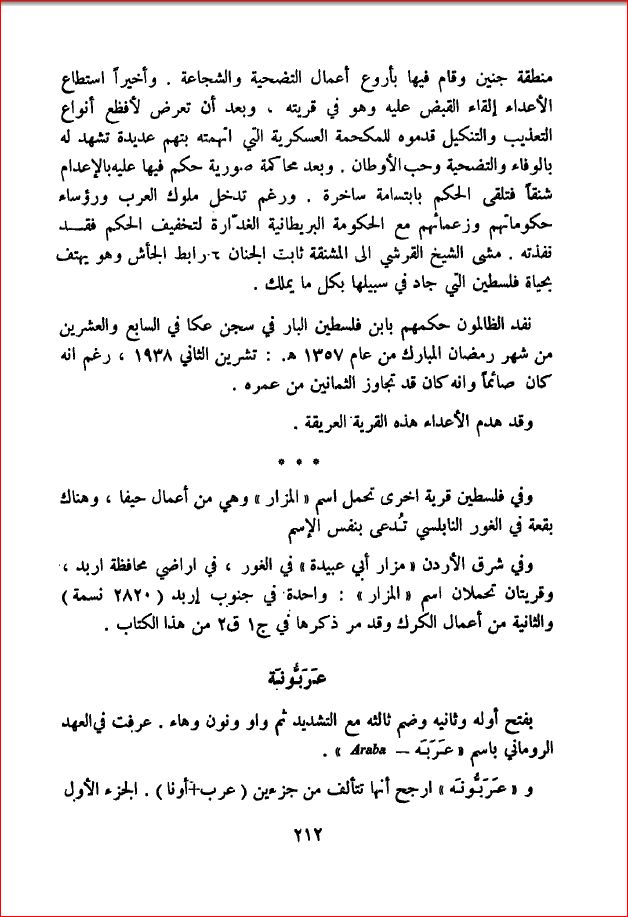 منطقة جنين وقام فيها بأروع أعمال التضحية والشجاعة . وأخيراً استطاع
الأعداء إلقاء القبض عليه وهو في قريته ، وبعد أن تعرض لأفظع أنواع
التعذيب والتنكيل قدموه للمكحمة العسكرية التي اتهمته بتهم عديدة تشهد له
بالوفاء والتضحية وحب الأوطان . وبعد محاكمة صورية حكم فيها عليه بالإعدام
شنقاً فتلقى الحكم بابتسامة ساخرة . ورغم تدخل ملوك العرب ورؤساء
حكوماتهم وزعمائهم مع الحكومة البريطانية الغدّارة لتخفيف الحكم فقد
نفذته . مشى الشيخ القرشي الى المشنقة ثابت الجنان ، رابط الجأش وهو يهتف
بحياة فلسطين التي جاد في سبيلها بكل ما يملك .
نفد الظالمون حكمهم بابن فلسطين البار في سجن عكا في السابع والعشرين
من شهر رمضان المبارك من عام ١٣٥٧ ه. : تشرين الثاني ١٩٣٨ ، رغم انه
كان صائماً وانه كان قد تجاوز الثمانين من عمره .
وقد هدم الأعداء هذه القرية العريقة .
* * *
وفي فلسطين قرية اخرى تحمل اسم « المزار » وهي من أعمال حيفا ، وهناك
بقعة في الغور النابلسي تُدعى بنفس الإسم
وفي شرق الأردن « مزار أبي عبيدة » في الغور ، في اراضي محافظة اربد ،
وقريتان تحملان اسم « المزار » : واحدة في جنوب إربد ( ٢٨٢٠ نسمة )
والثانية من أعمال الكرك وقد مر ذكرها في ج١ ق٢ من هذا الكتاب .
عَرَبُّونَة
بفتح أوله وثانيه وضم ثالثه مع التشديد ثم واو ونون وهاء . عرفت في العهد
الروماني باسم « عَرَبَه – Araba » .
و « عَرَبُّونَه » ارجح أنها تتألف من جزءين ( عرب+أونا ) . الجزء الأول
٢١٢